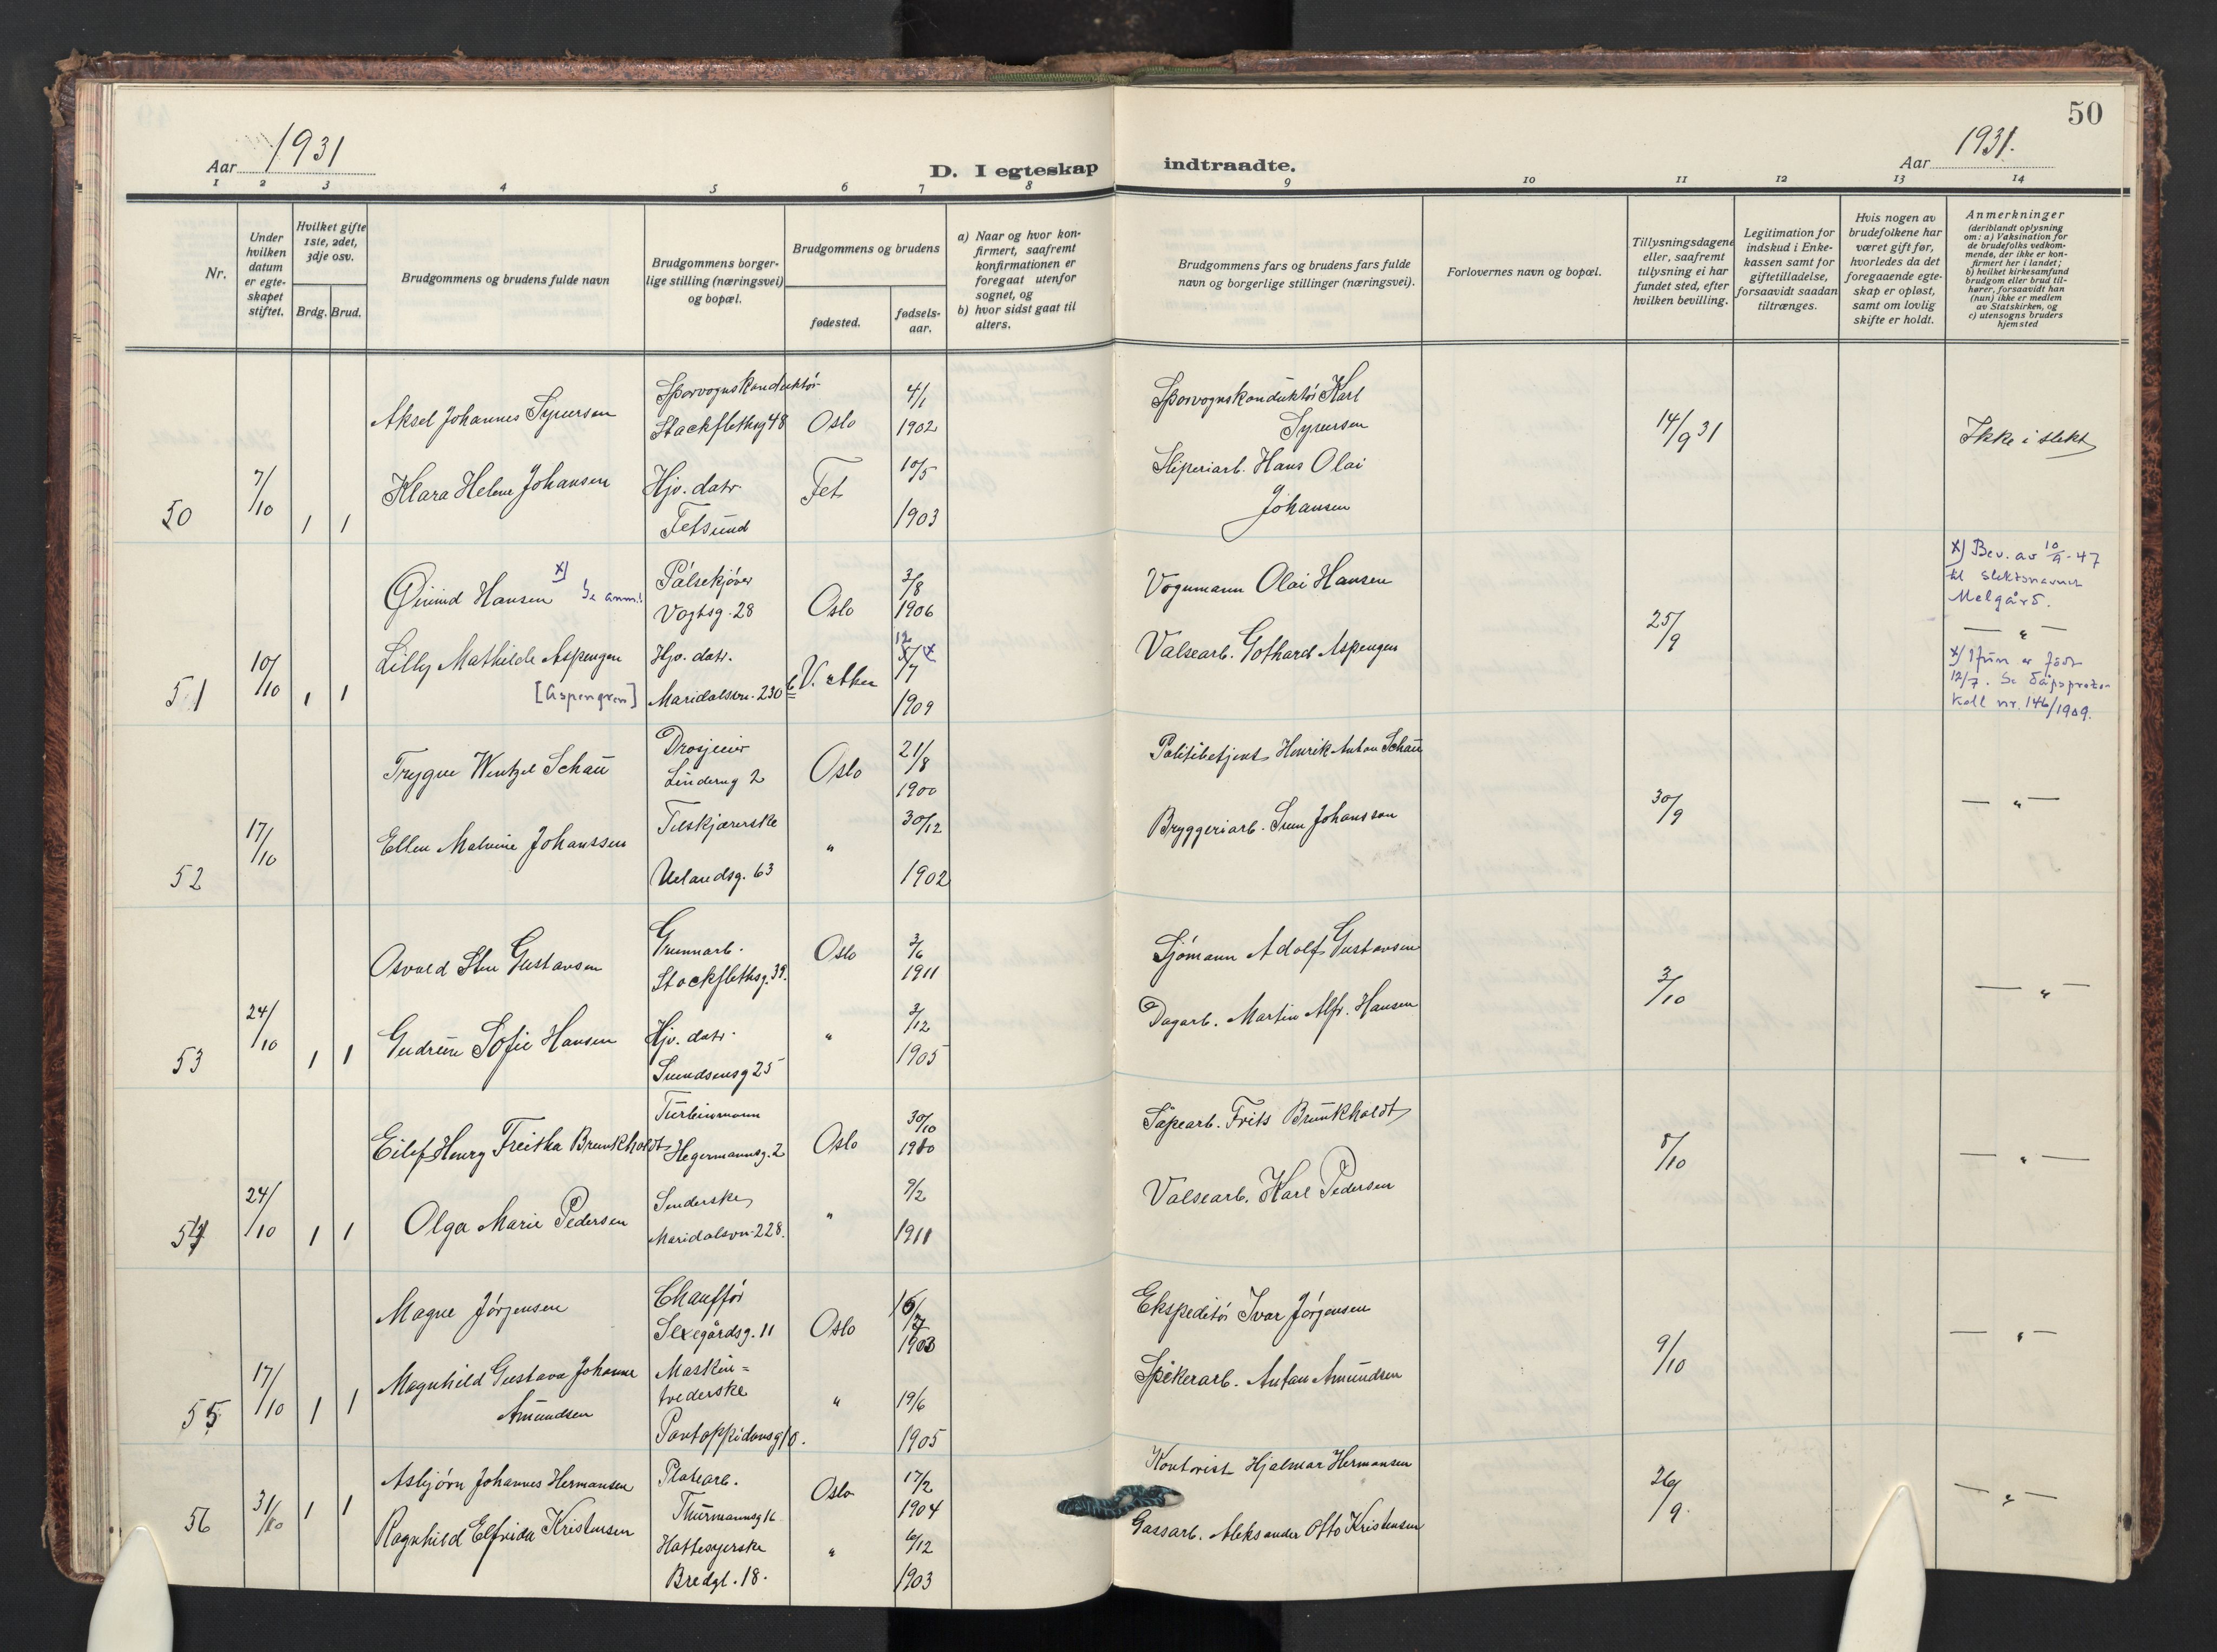 50
Aar 1931
D. I egteskap indtraadte.
Aar 1931.
1 2 3 4 5 6 7 8 9 10 11 12 13 14
Nr.
Under hvilken datum er egteskapet stiftet.
Hvilket gifte 1ste, 2det, 3dje osv.
Brdg. Brud.
Brudgommens og brudens fulde navn
Brudgommens borgerlige stilling (næringsvei) og bopæl.
Brudgommens og brudens
fødested.
fødselsaar.
a) Naar og hvor konfirmert, saafremt konfirmationen er foregaat utenfor sognet, og
b) hvor sidst gaat til alters.
Brudgommens fars og brudens fars fulde navn og borgerlige stillinger (næringsvei).
Forlovernes navn og bopæl.
Tillysningsdagene eller, saafremt tillysning ei har fundet sted, efter hvilken bevilling.
Legitimation for indskud i Enkekassen samt for giftetilladelse, forsaavidt saadan tiltrænges.
Hvis nogen av brudefolkene har været gift før, hvorledes da det foregaaende egteskap er opløst, samt om lovlig skifte er holdt.
Anmerkninger
(deriblandt oplysning om: a) Vaksination for de brudefolks vedkommende, der ikke er konfirmert her i landet;
b) hvilket kirkesamfund brudgom eller brud tilhører, forsaavidt han (hun) ikke er medlem av Statskirken, og
c) utensogns bruders hjemsted
50 7/10 1 1
Aksel Johannes Syversen
Sporvognskonduktör
Stockflethsg 48
Oslo
4/1
1902
Sporvognskonduktör Karl
Syversen
14/9 31
Ikke i slekt
Klara Helene Johansen
Hjv. datr.
Fetsund
Fet
10/5
1903
Sliperiarb. Hans Olai
Johansen
51 10/10 1 1
Øivind Hansen x) Se anm.!
Pølsekjøver
Vogtsg. 28
Oslo
3/8
1906
Vognmann Olai Hansen
25/9
x) Bev. av 10/9-47
til slektsnavnet
Melgård.
— " —
Lilly Mathilde Aspengen
[Aspengren]
Hjv. datr.
Maridalsvn. 230 b
V. Aker
12 x
/7
1909
Valsearb. Gothard Aspengen
x) Hun er född
12/7. Se dåpsproto-
koll nr. 146/1909.
52 17/10
Trygve Wentzel Schau
Drosjeeier
Linderng 2
Oslo
21/8
1900
Politibetjent Henrik Anton Schau
30/9
— " —
Ellen Malvine Johanssen
Tilskjærerske
Uelandsg. 63
"
30/12
1902
Bryggeriarb. Sven Johansson
53 24/10 1 1
Osvald Sten Gustavsen
Grunnarb.
Stockflethsg. 39.
Oslo
3/6
1911
Sjömann Adolf Gustavsen
3/10
— " —
Gudrun Sofie Hansen
Hjv. datr.
Svendsensg 25
"
3/12
1905
Dagarb. Martin Alfr. Hansen
54 24/10 1 1
Eilef Henry Freitka Brunkholdt
Turbinmann
Hegermannsg. 2
Oslo
30/10
1910
Såpearb. Frits Brunkholdt
8/10
— " —
Olga Marie Pedersen
Senderske
Maridalsvn. 228.
"
9/2
1911
Valsearb. Karl Pedersen
55 17/10 1 1
Magne Jörgensen
Chaufför
Sexegårdsg. 11
Oslo
15/7
1903
Ekspeditör Ivar Jörgensen
9/10
— " —
Magnhild Gustava Johanne
Amundsen
Maskin=
trederske
Pontoppidansg 10.
"
19/6
1905
Spikerarb. Anton Amundsen
56 31/10 1 1
Asbjørn Johannes Hermansen
Platearb.
Thurmannsg 16
Oslo
17/2
1904
Kontorist Hjalmar Hermansen
26/9
— " —
Ragnhild Elfrida Kristensen
Hattesyerske
Bredgt. 18.
"
6/12
1903
Gassarb. Aleksander Otto Kristensen